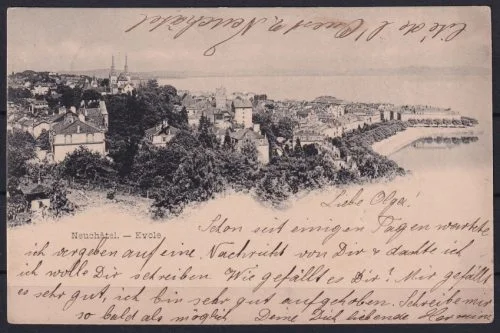 Cité de l'Ouest 2, Neuchâtel
Neuchâtel. — Evole.
Liebe Olga!
Schon seit einigen Tagen wartete
ich vergeben auf eine Nachricht von Dir & dachte ich
ich wolle Dir schreiben Wie gefällt es Dir? Mir gefällt
es sehr gut, ich bin sehr gut aufgehoben. Schreibe mir
so bald als möglich Deine Dich liebende Hermine